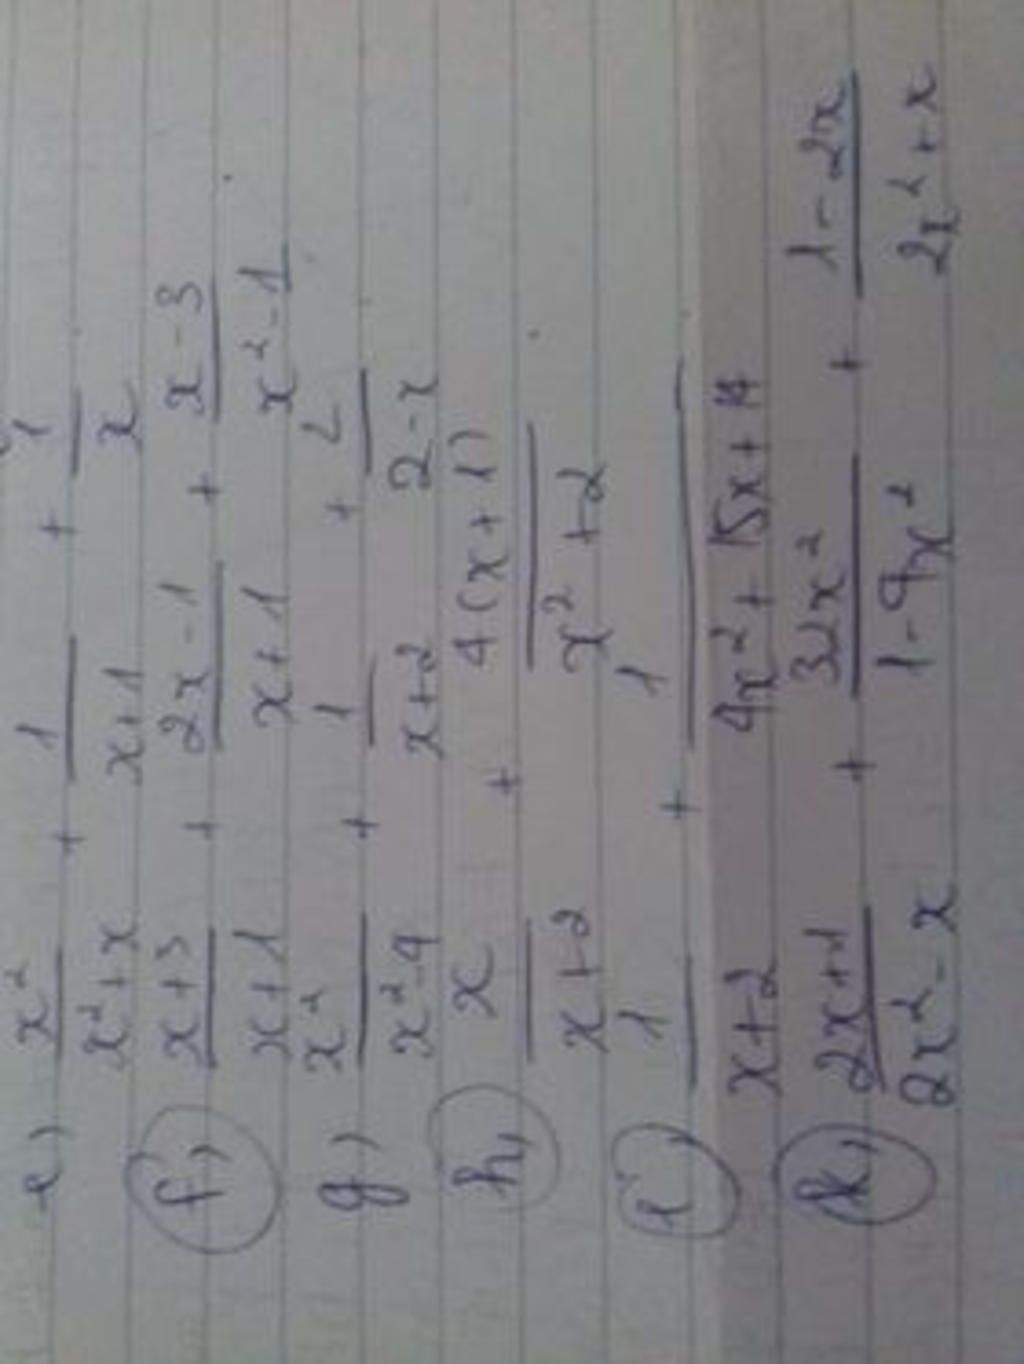 e) x²/(x²+x) + 1/(x+1) + 1/x
f, (x+3)/(x+1) + (2x-1)/(x+1) + (x-3)/(x²-1)
g) x²/(x²-4) + 1/(x+2) + 2/(2-x)
h, x/(x+2) + 4(x+1)/(x²+2)
i, 1/(x+2) + 1/(4x²+15x+14)
k, (2x+1)/(2x²-x) + 32x²/(1-9x²) + (1-2x)/(2x²+x)